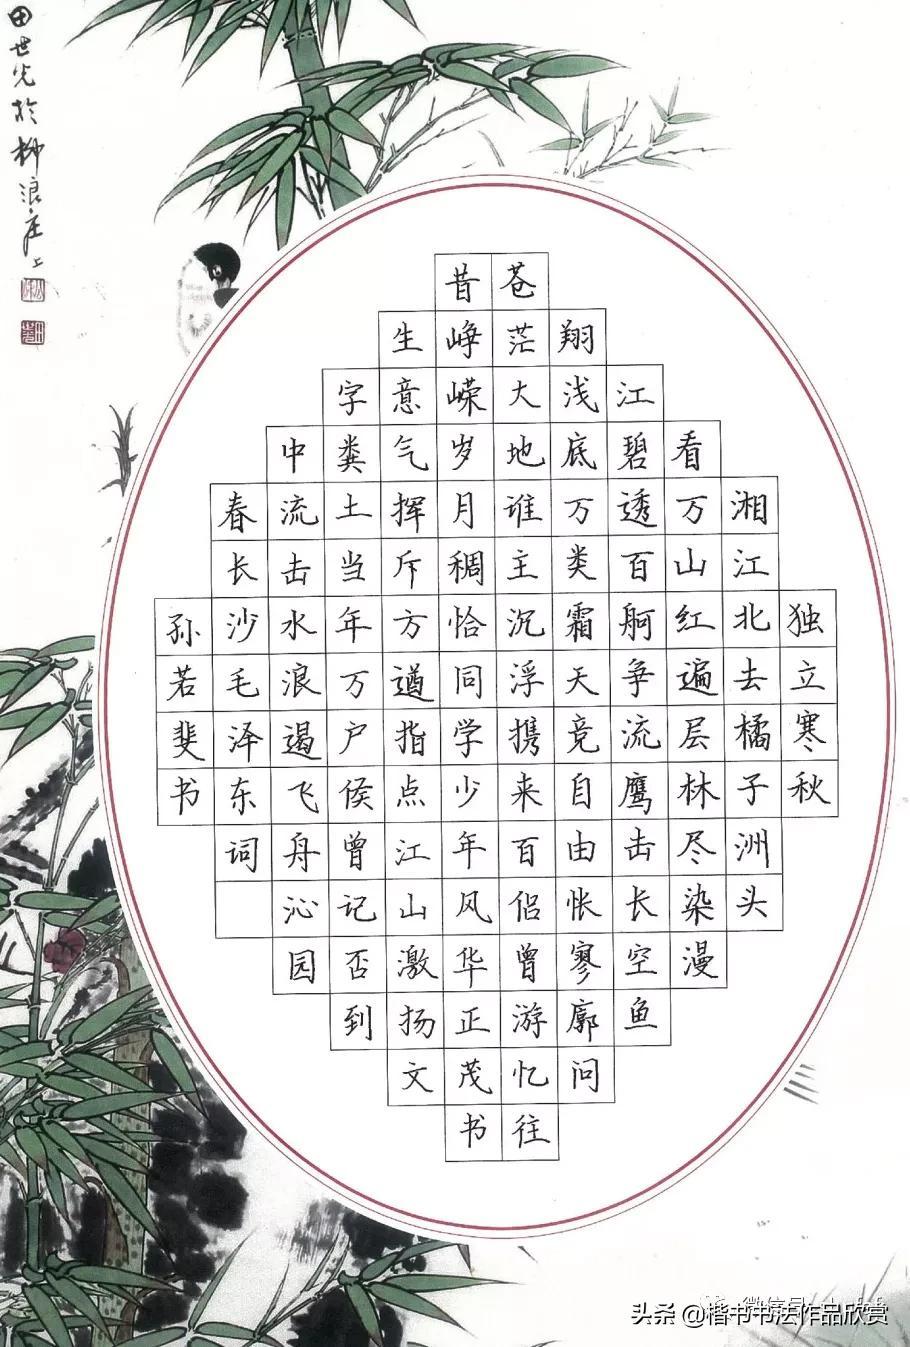 独立寒秋
湘江北去橘子洲头
看万山红遍层林尽染漫
江碧透百舸争流鹰击长空鱼
翔浅底万类霜天竞自由怅寥廓问
苍茫大地谁主沉浮携来百侣曾游忆往
昔峥嵘岁月稠恰同学少年风华正茂书
生意气挥斥方遒指点江山激扬文
字粪土当年万户侯曾记否到
中流击水浪遏飞舟沁园
春长沙毛泽东词
孙若斐书
田世光於柳浪庄上
微信号
头条 @楷书书法作品欣赏